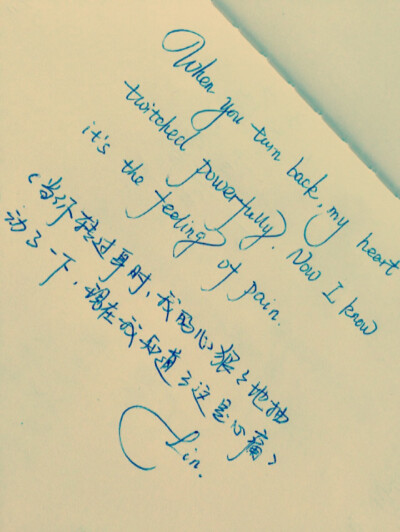 When you turn back, my heart
twitched powerfully. Now I know
it's the feeling of pain.
(当你转过身时，我的心狠狠地抽
动了一下，现在我知道了这是心痛)
Lin.